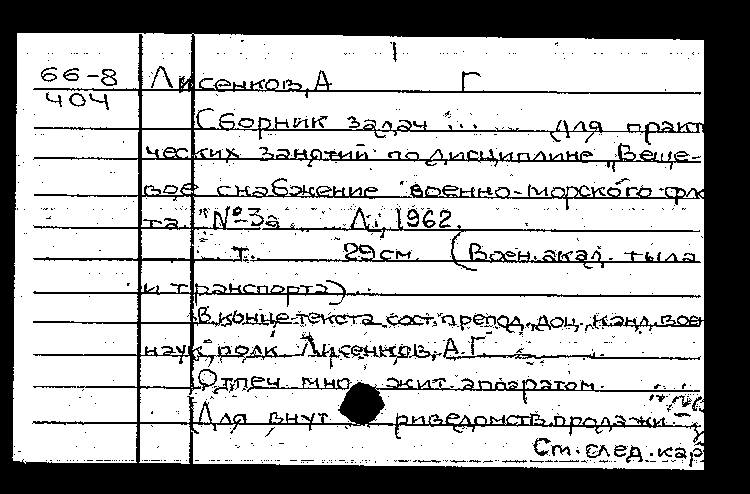 66-8 Лисенков, А Г
404
Сборник задач ... для практ
ческих занятий по дисциплине „Веще-
вое снабжение военно-морского фло
та" №3а Л., 1962.
т. 29 см. (Воен. акад. тыла
и транспорта)
В конце текста сост. препод. доц. канд. воен
наук, полк Лисенков, А.Г.
Отпеч мно жит. аппаратом.
Для внут риведомств. продажи
См. след. кар